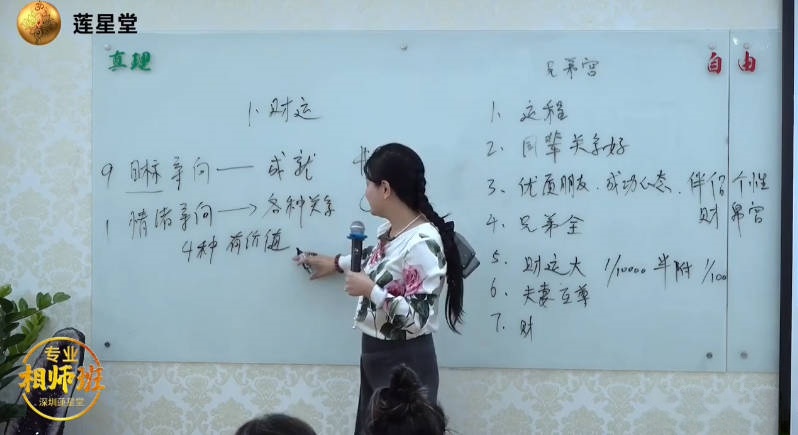 莲星堂
真理
自由
1. 财运
9 目标导向 — 成就
1 情绪导向 → 各种关系
4种 有价值
兄弟宫
1. 运程
2. 同辈关系好
3. 优质朋友、成功心态、伴侣个性
财帛宫
4. 兄弟全
5. 财运大 1/10000 半附 1/100
6. 夫妻互尊
7. 财
专业
相师班
深圳莲星堂